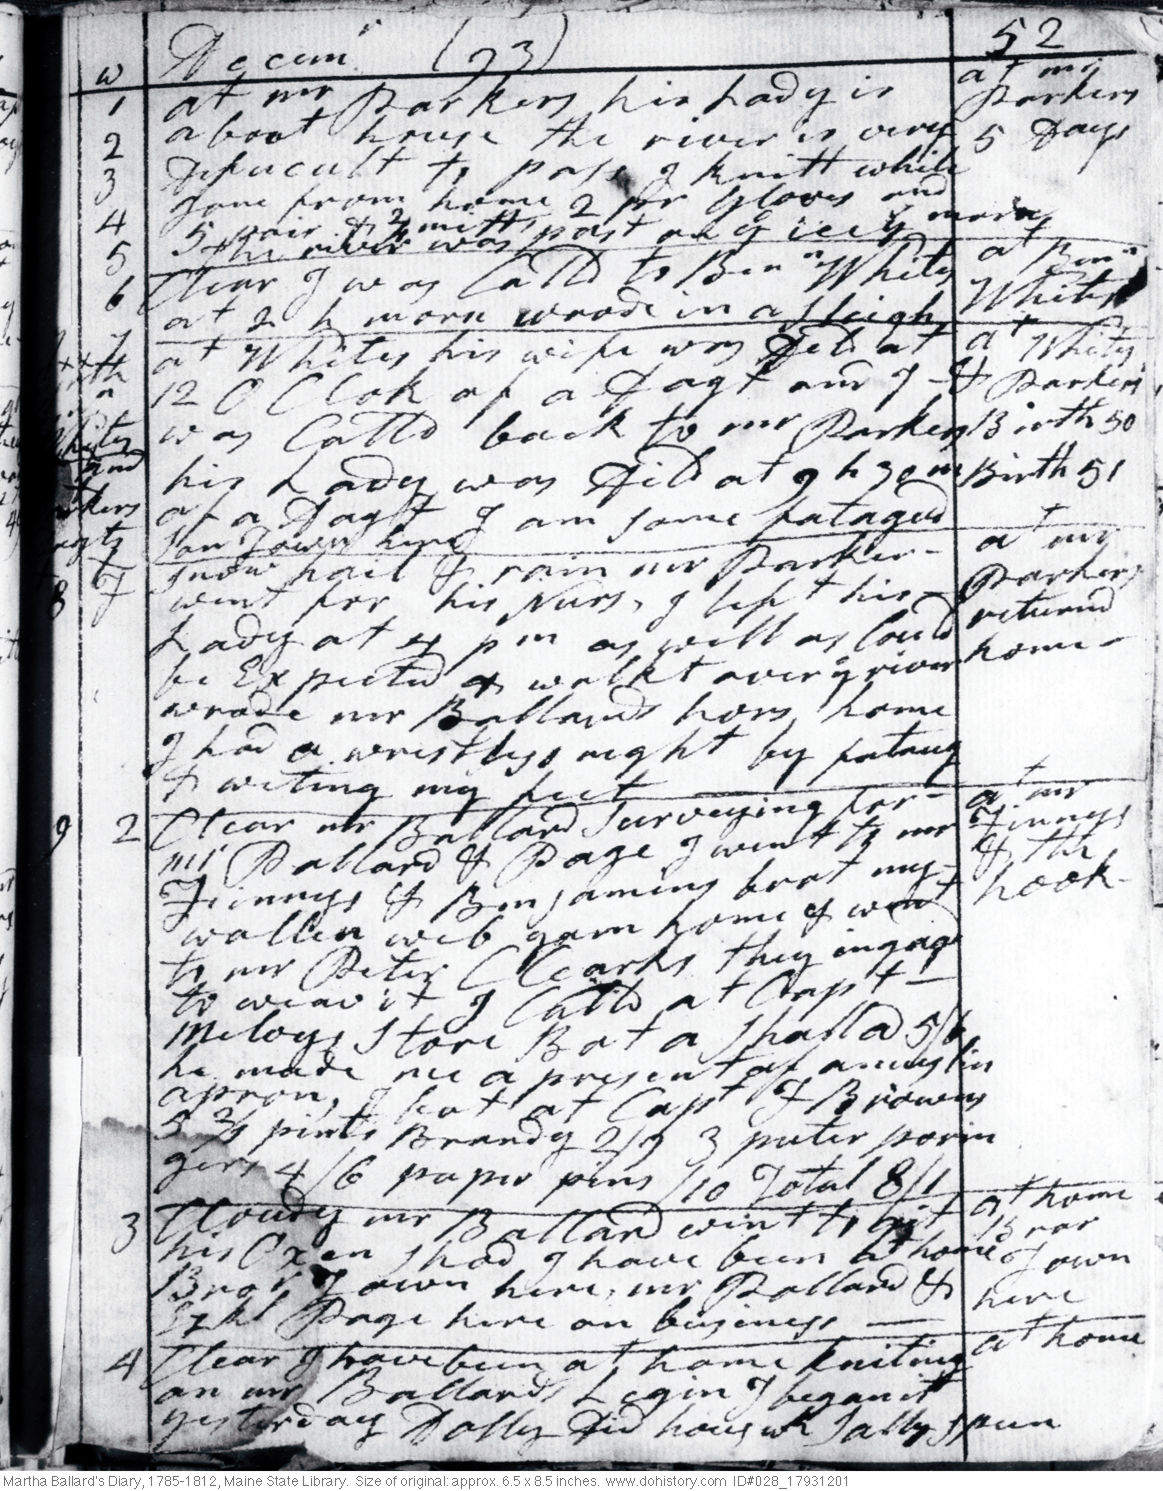 Decem^r (93) 52
w 1 at mr Parkers his Lady is at mr Parkers
2 about house the river is very 5 Days
3 Dificult to pass I knitt while
4 gone from home 2 pr gloves and
5 5 pair & ½ mitts
5 the river was past on ye icey morng
6 Clear I was Calld to Benn Whites at Benn
at 2 h morn wrode in a sleigh Whites
7 at Whites his wife was Deld at at Whites
12 O Clok of a Dagt and I - & Parkers
was Calld back to mr Parkers Birth 50
his Lady was Dild at 9 h 30 m Birth 51
of a Dagt I am some fataged
son Town here
8 7 snow hail & rain mr Parker - at mr
went for his Nurs, I left his - Parkers
Lady at 4 pm as well as Could returnd
be Expected & walkt over ye river home -
wrode mr Ballards hors home
I had a wrestless night by fataug
& weting my feet
9 2 Clear mr Ballard Surveying for - at mr
mr Pollard & Page I went to mr Finneys
Finneys & Benjamins brot my & the
wollen web yarn home & went hook -
to mr Peter Clearks they ingage
to weav it I Calld at Capt -
Meloys Store Bot a shall a 5/6
he made me a present of a muslin
apron, I bot at Capt J Browns
5 ¾ pints Brandy 2/9 3 puter porin
gers 4/6 paper pins /10 Total 8/1
3 Cloudy mr Ballard went to git at home
his Oxen shod I have been at home Bror
Bror Town here, mr Pollard & Town
Ezkl Page here on business — here
4 Clear I have been at home kniting at home
on mr Ballards Legin I began it
yesterday Dolly Did hous wk Sally spun
Martha Ballard's Diary, 1785-1812, Maine State Library. Size of original: approx. 6.5 x 8.5 inches. www.dohistory.com ID#028_17931201